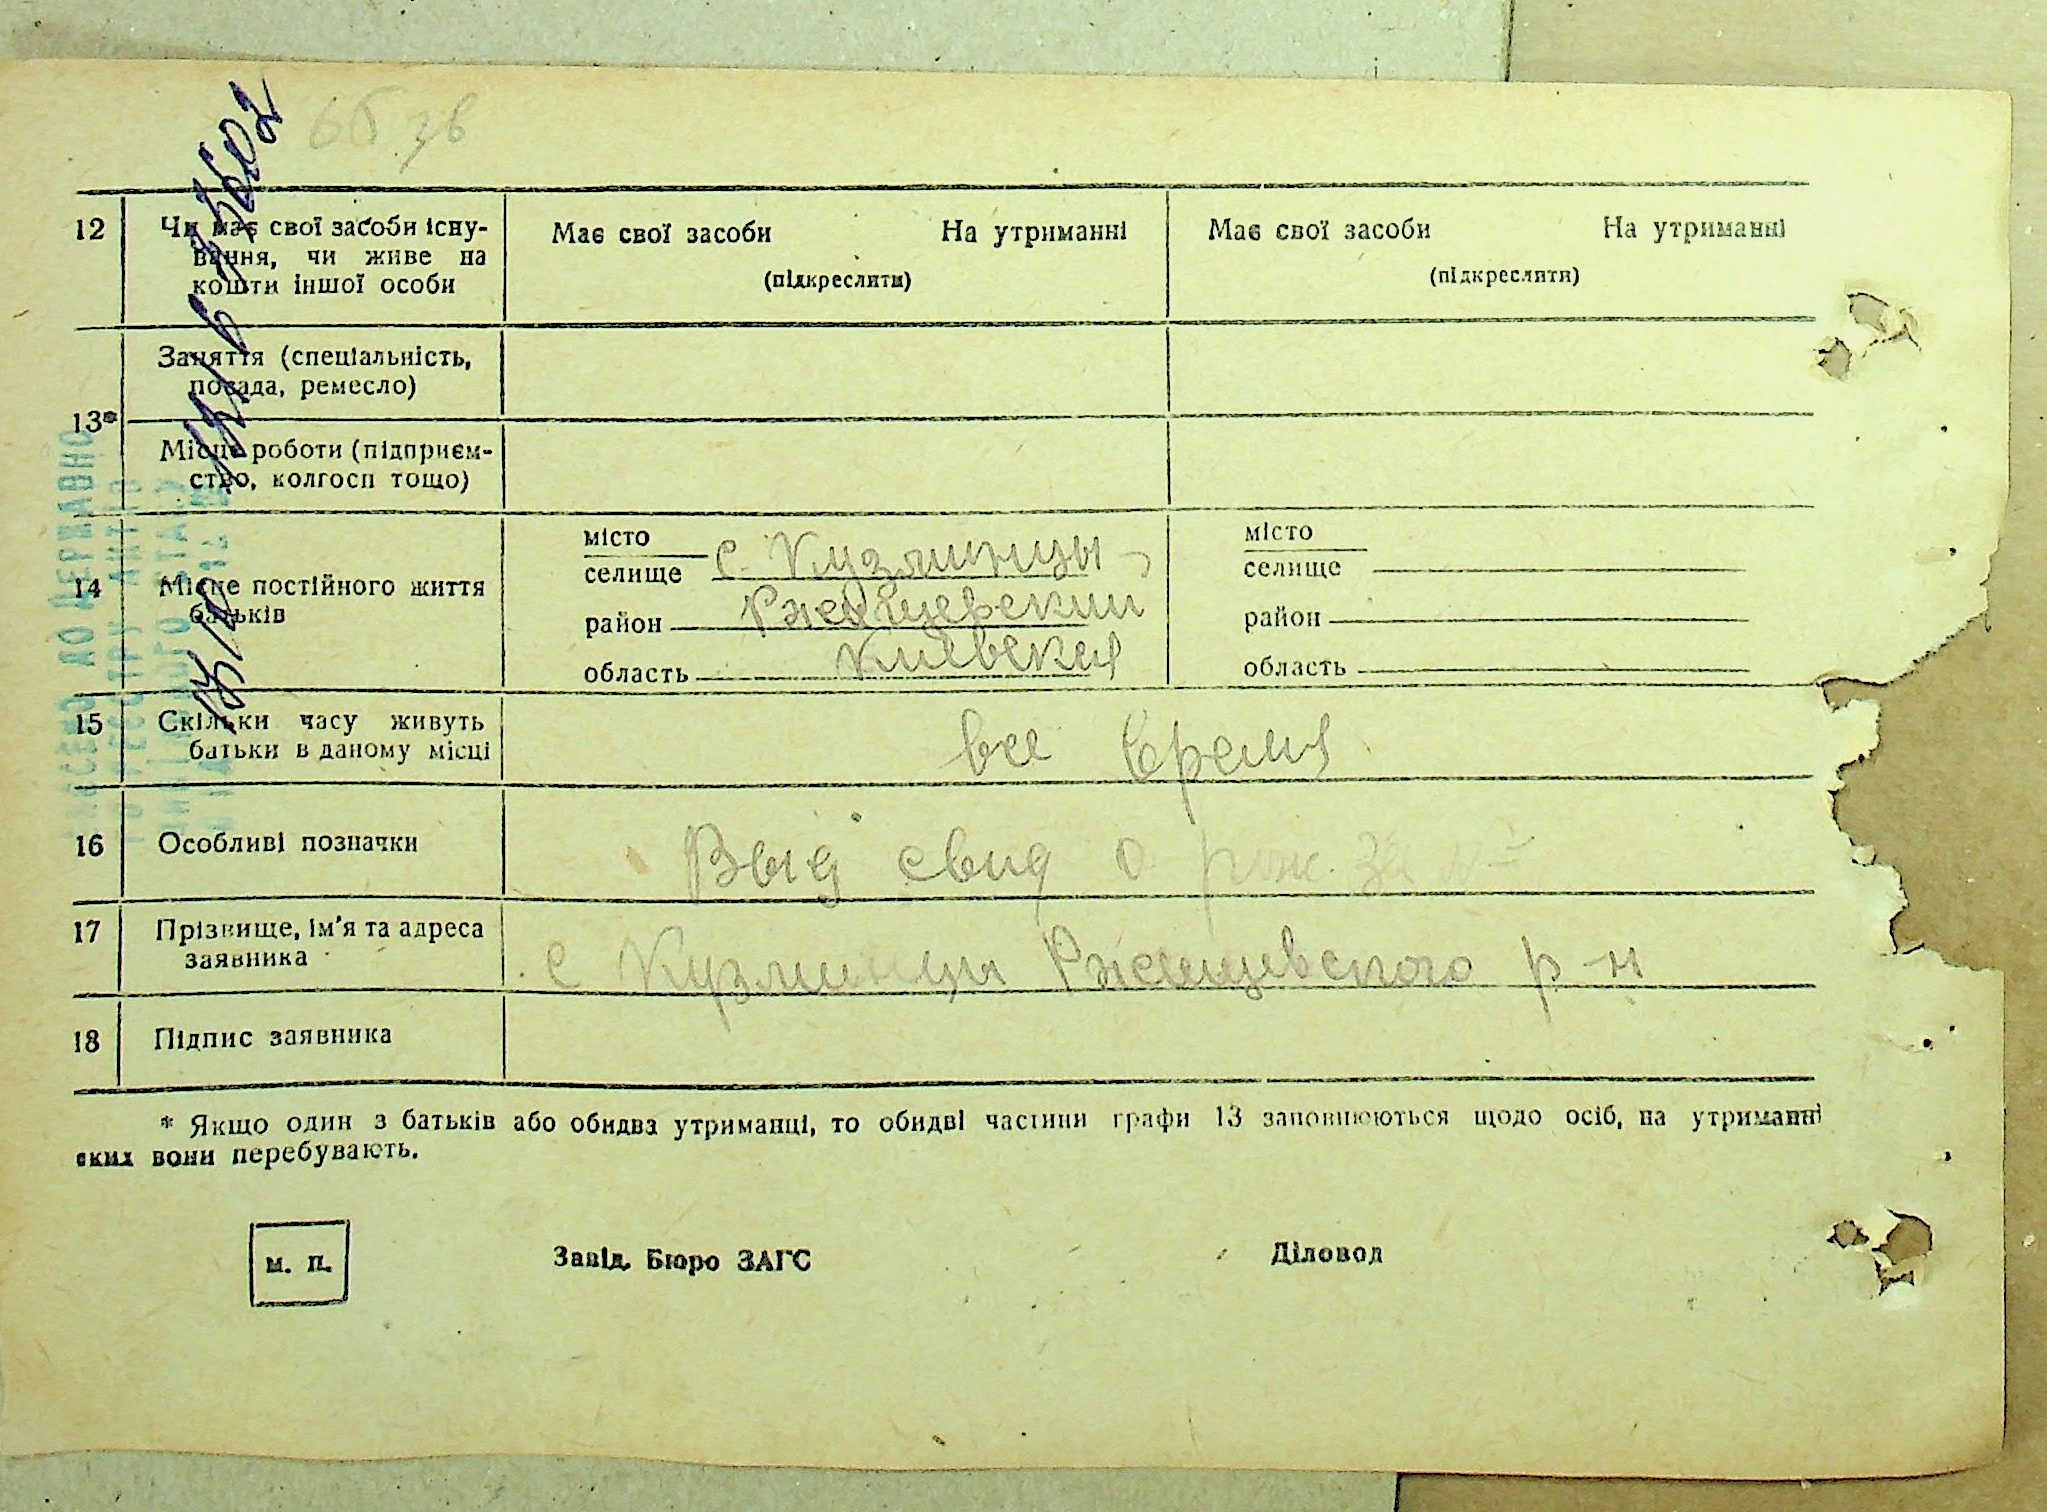 12 Чи має свої засоби існу- Має свої засоби На утриманні Має свої засоби На утриманні
вання, чи живе на (підкреслити) (підкреслити)
кошти іншої особи
Заняття (спеціальність,
посада, ремесло)
13*
Місце роботи (підприєм-
ство, колгосп тощо)
місто місто
селище с. Кузминцы селище
14 Місце постійного життя
батьків
район Ржищевский район
область Киевская область
15 Скільки часу живуть все время
батьки в даному місці
16 Особливі позначки Выд свид о рож. за №
17 Прізвище, ім'я та адреса
заявника с Кузминцы Ржищевского р-н
18 Підпис заявника
* Якщо один з батьків або обидва утриманці, то обидві частини графи 13 заповнюються щодо осіб, на утриманні
яких вони перебувають.
м. п. Завід. Бюро ЗАГС Діловод